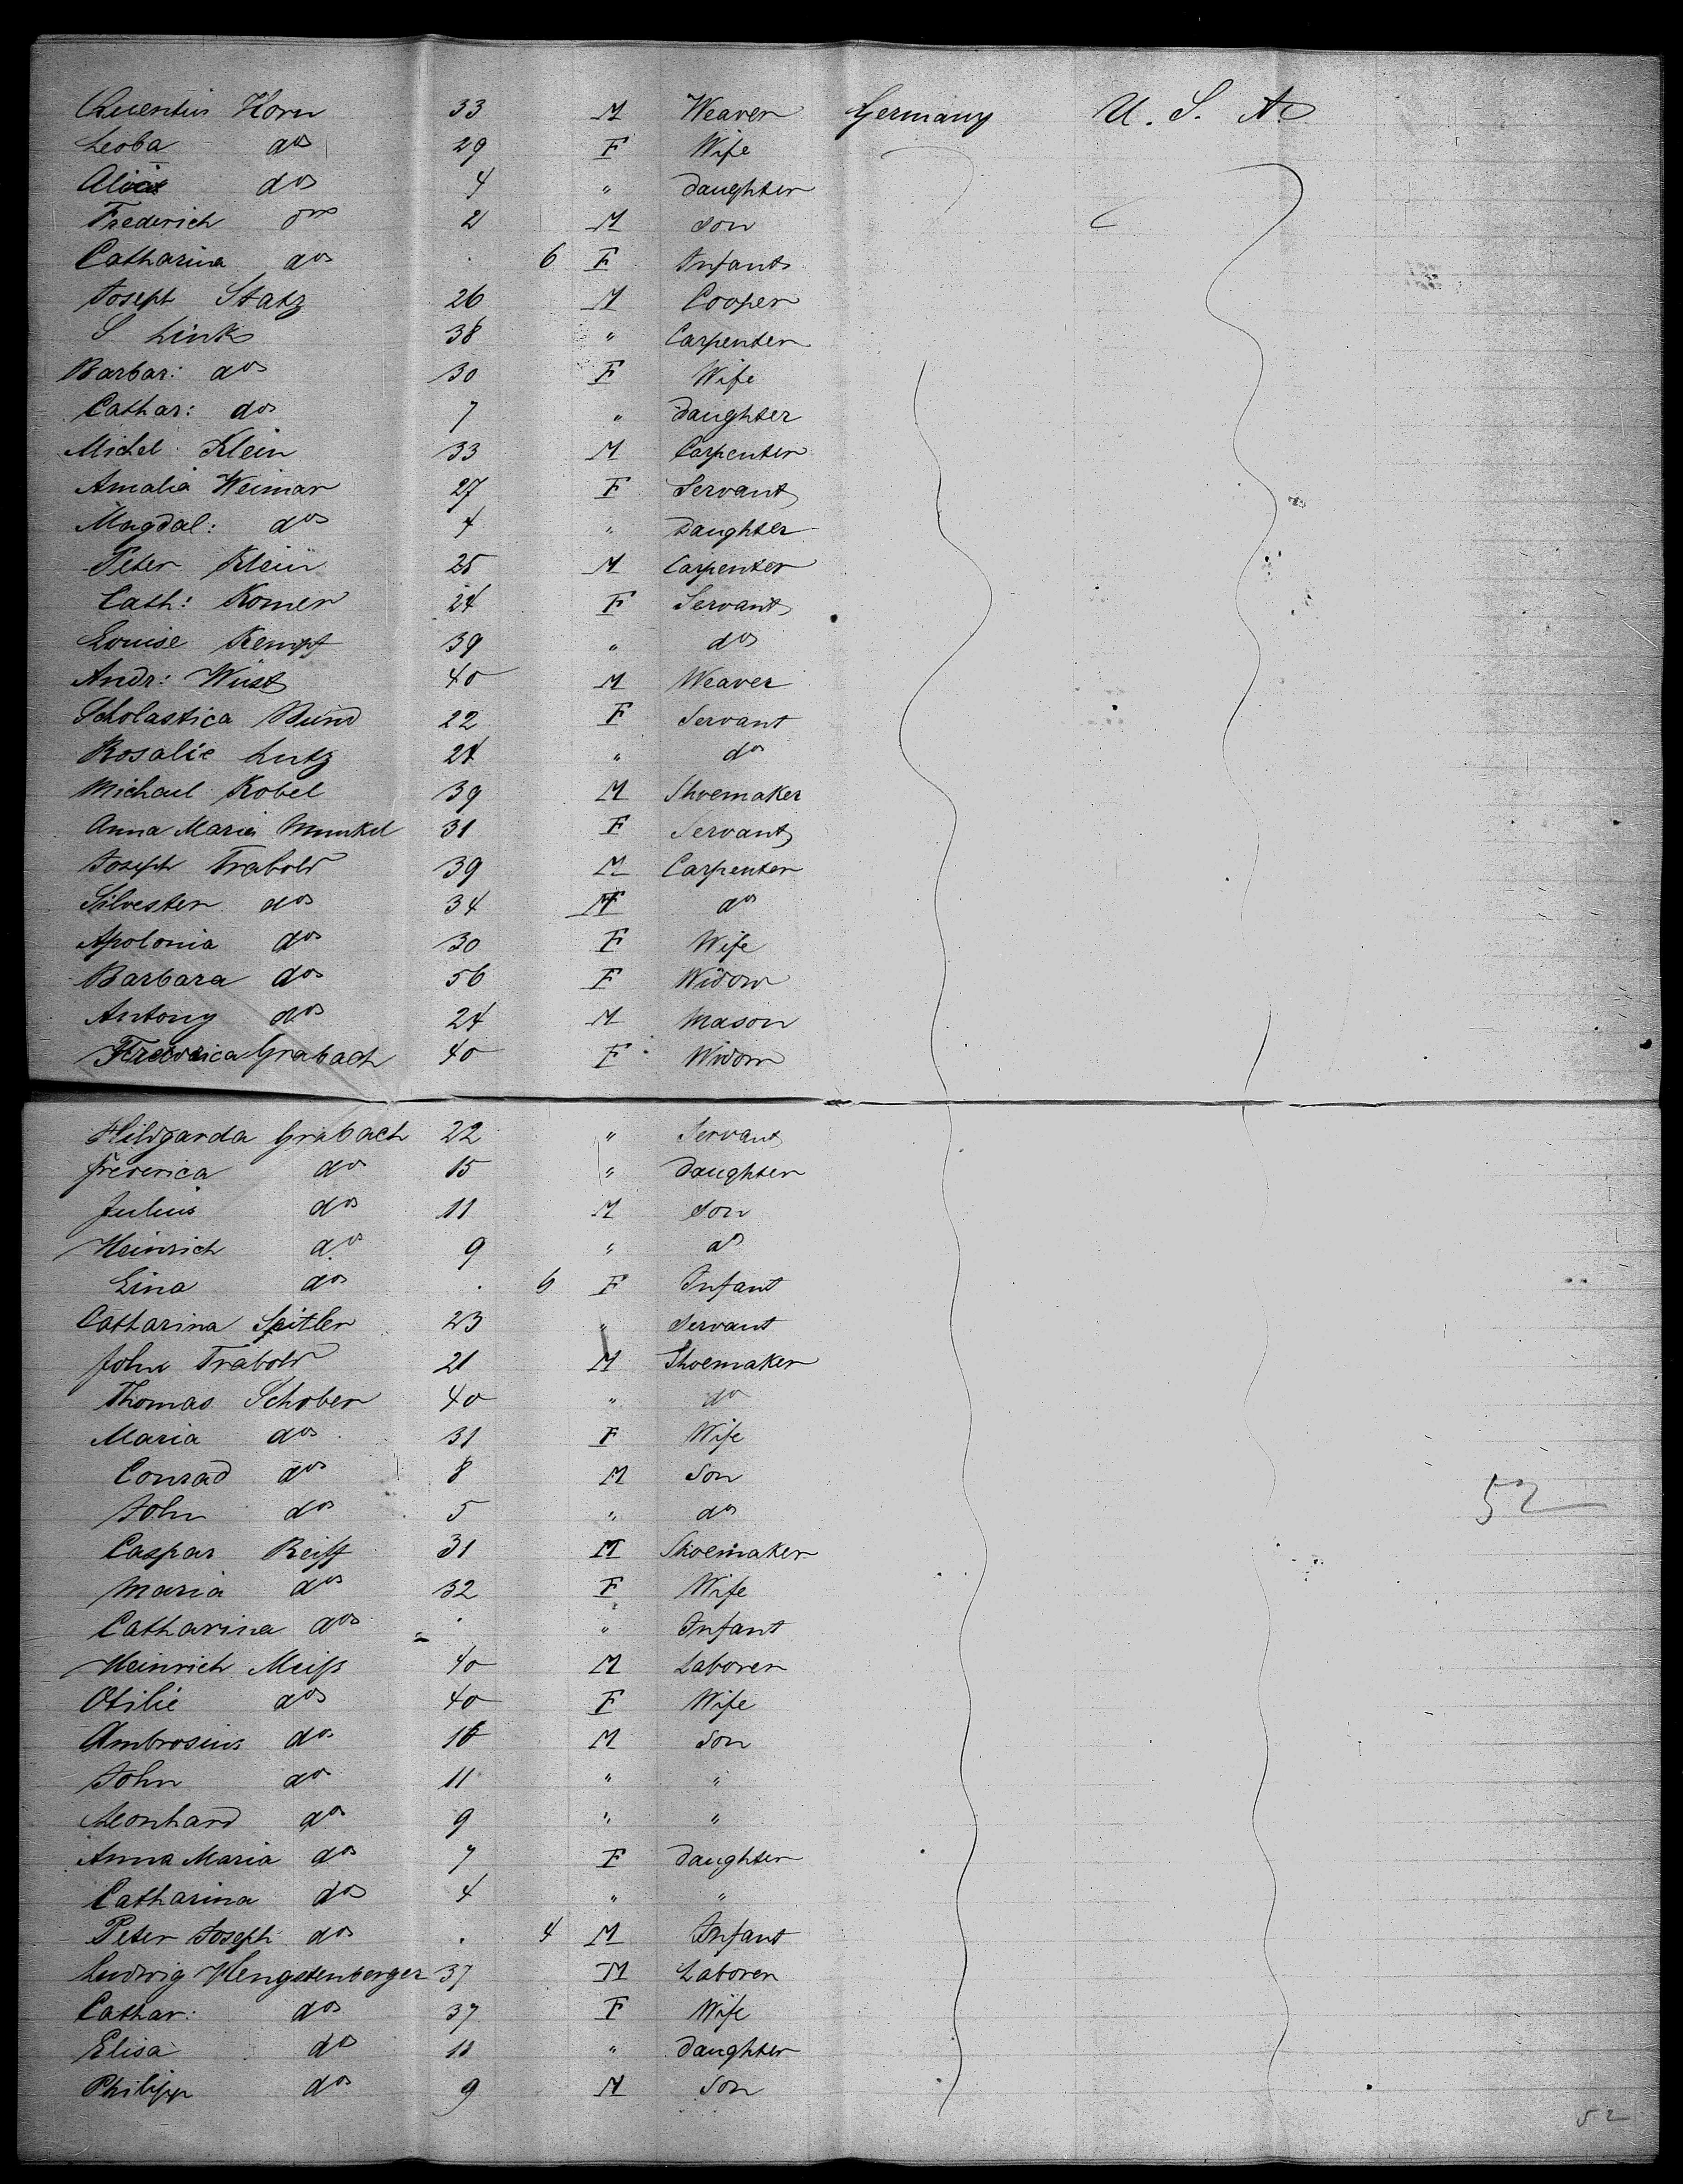 Quentin Horn 33 M Weaver Germany U. S. A.
Leoba do 29 F Wife
do 4 " daughter
Frederich do 2 M Son
Catharina do . 6 F Infant
Joseph Statz 26 M Cooper
S Link 38 " Carpenter
Barbar: do 30 F Wife
Cathar: do 7 " daughter
Michel Klein 33 M Carpenter
Amalia Weimar 27 F Servant
Magdal: do 4 " Daughter
Peter Klein 25 M Carpenter
Cath: Romer 24 F Servant
Louise Kempf 39 " do
Andr: Wüst 40 M Weaver
Scholastica 22 F Servant
Rosalie Lutz 24 " do
Michael Kobel 39 M Shoemaker
Anna Maria Munkel 31 F Servant
Joseph Trabold 39 M Carpenter
Silvester do 34 M do
Apolonia do 30 F Wife
Barbara do 56 F Widow
Antony do 24 M Mason
Frederica Grabach 40 F Widow
Hildgarda Grabach 22 " Servant
Frederica do 15 " daughter
Julius do 11 M Son
Heinrich do 9 " do
Lina do . 6 F Infant
Catharina Seitler 23 " Servant
John Trabold 21 M Shoemaker
Thomas Schober 40 " do
Maria do 31 F Wife
Conrad do 8 M Son
John do 5 " do 52
Caspar Reiff 31 M Shoemaker
Maria do 32 F Wife
Catharina do . " Infant
Heinrich Meiß 40 M Laborer
Otilie do 40 F Wife
Ambrosius do M Son
John do 11 " "
Leonhard do 9 " "
Anna Maria do 7 F daughter
Catharina do 4 " "
Peter Joseph do . 4 M Infant
Ludwig Hengstenberger 37 M Laborer
Cathar: do 37 F Wife
Elisa do 11 " daughter
Philipp do 9 M Son
52